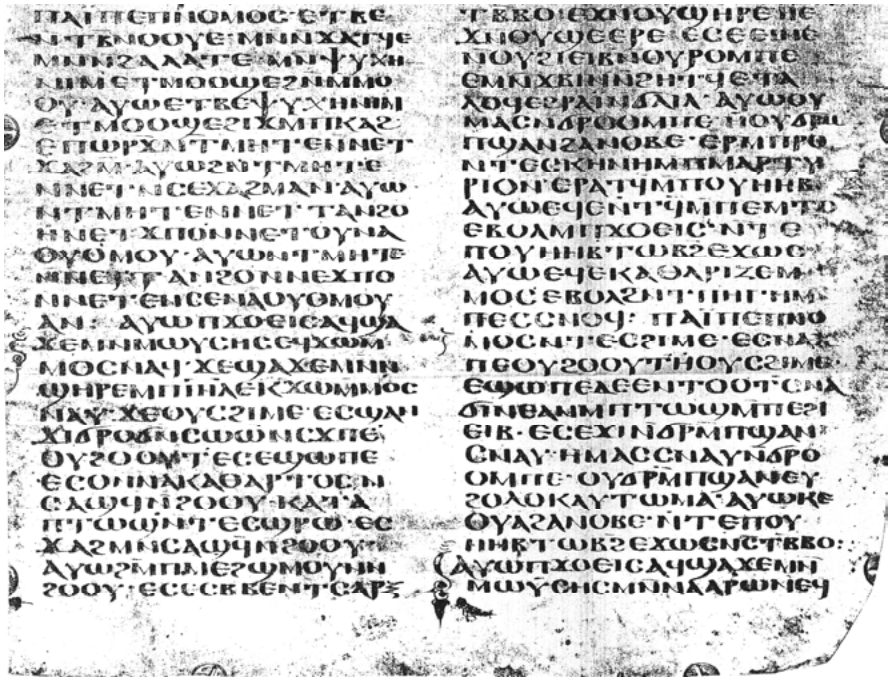 ⲡⲁⲓⲡⲉⲡⲛⲟⲙⲟⲥ·ⲉⲧⲃⲉ
ⲛⲧⲃⲛⲟⲟⲩⲉ·ⲙⲛⲛϫⲁⲧϥⲉ
ⲙⲛⲛϩⲁⲗⲁⲁⲧⲉ·ⲙⲛⲯⲩⲭⲏ
ⲛⲓⲙⲉⲧⲙⲟⲟϣⲉϩⲛⲙⲙⲟ
ⲟⲩ·ⲁⲩⲱⲉⲧⲃⲉⲯⲩⲭⲏⲛⲓⲙ
ⲉⲧⲙⲟⲟϣⲉϩⲓϫⲙⲡⲕⲁϩ·
ⲉⲡⲱⲣϫⲛⲧⲙⲏⲧⲉⲛⲛⲉⲧ
ϫⲁϩⲙ·ⲁⲩⲱϩⲛⲧⲙⲏⲧⲉ
ⲛⲛⲉⲧⲛⲥⲉϫⲁϩⲙⲁⲛ·ⲁⲩⲱ
ⲛⲧⲙⲏⲧⲉⲛⲛⲉⲧⲧⲁⲛϩⲟ
ⲏⲛⲉⲧϫⲡⲟⲛⲛⲉⲧⲟⲩⲛⲁ
ⲟⲩⲟⲙⲟⲩ·ⲁⲩⲱⲛⲧⲙⲏⲧⲉ
ⲛⲛⲉⲧⲧⲁⲛϩⲟⲛⲛⲉϫⲡⲟ
ⲛⲛⲉⲧⲉⲛⲥⲉⲛⲁⲟⲩⲟⲙⲟⲩ
ⲁⲛ: ⲁⲩⲱⲡϫⲟⲉⲓⲥⲁϥϣⲁ
ϫⲉⲙⲛⲙⲱⲩⲥⲏⲥⲉϥϫⲱⲙ
ⲙⲟⲥⲛⲁϥ·ϫⲉϣⲁϫⲉⲙⲛⲛ
ϣⲏⲣⲉⲙⲡⲓⲏⲗⲉⲕϫⲱⲙⲙⲟⲥ
ⲛⲁⲩ·ϫⲉⲟⲩⲥϩⲓⲙⲉ·ⲉⲥϣⲁⲛ
ϫⲓϭⲣⲟϭⲛⲥⲱⲱⲛⲥϫⲡⲉ
ⲟⲩϩⲟⲟⲩⲧⲉⲥⲉϣⲱⲡⲉ
ⲉⲥⲟⲛⲛⲁⲕⲁⲑⲁⲣⲧⲟⲥⲛ
ⲥⲁϣϥⲛϩⲟⲟⲩ·ⲕⲁⲧⲁ
ⲡⲧⲱϣⲛⲧⲉⲥϣⲣⲱ·ⲉⲥ
ϫⲁϩⲙⲛⲥⲁϣϥⲛϩⲟⲟⲩ·
ⲁⲩⲱϩⲙⲡⲙⲉϩϣⲙⲟⲩⲛⲛ
ϩⲟⲟⲩ·ⲉⲥⲉⲥⲃⲃⲉⲛⲧⲥⲁⲣⲝ
ⲧⲃⲃⲟ·ⲉϫⲛⲟⲩϣⲏⲣⲉⲏⲉ
ϫⲛⲟⲩϣⲉⲉⲣⲉ·ⲉⲥⲉⲉⲓⲛⲉ
ⲛⲟⲩϩⲓⲉⲓⲃⲛⲟⲩⲣⲟⲙⲡⲉ
ⲉⲙⲛϫⲃⲓⲛⲛϩⲏⲧϥⲉϭⲁ
ⲗⲟϥⲉϩⲣⲁⲓⲛϭⲗⲓⲗ·ⲁⲩⲱⲟⲩ
ⲙⲁⲥⲛϭⲣⲟⲟⲙⲡⲉ·ⲏⲟⲩϭⲣⲙ
ⲡϣⲁⲛϩⲁⲛⲟⲃⲉ·ⲉⲣⲙⲡⲣⲟ
ⲛⲧⲉⲥⲕⲏⲛⲏⲙⲡⲙⲁⲣⲧⲩ
ⲣⲓⲟⲛ·ⲉⲣⲁⲧϥⲙⲡⲟⲩⲏⲏⲃ·
ⲁⲩⲱⲉϥⲉⲛⲧϥⲙⲡⲉⲙⲧⲟ
ⲉⲃⲟⲗⲙⲡϫⲟⲉⲓⲥ·ⲛⲧⲉ
ⲡⲟⲩⲏⲏⲃⲧⲱⲃϩⲉϫⲱⲥ·
ⲁⲩⲱⲉϥⲉⲕⲁⲑⲁⲣⲓⲍⲉⲙ
ⲙⲟⲥⲉⲃⲟⲗϩⲛⲧⲡⲏⲅⲏⲙ
ⲡⲉⲥⲥⲛⲟϥ: ⲡⲁⲓⲡⲉⲡⲛⲟ
ⲙⲟⲥⲛⲧⲉⲥϩⲓⲙⲉ·ⲉⲥⲛⲁϫ
ⲡⲉⲟⲩϩⲟⲟⲩⲧⲏⲟⲩⲥϩⲓⲙⲉ·
ⲉϣⲱⲡⲉⲇⲉⲉⲛⲧⲟⲟⲧⲥⲛⲁ
ϭⲓⲛⲉⲁⲛⲙⲡⲧⲱϣⲙⲡⲉϩⲓ
ⲉⲓⲃ·ⲉⲥⲉϫⲓⲛϭⲣⲙⲡϣⲁⲛ
ⲥⲛⲁⲩ·ⲏⲙⲁⲥⲥⲛⲁⲩⲛϭⲣⲟ
ⲟⲙⲡⲉ·ⲟⲩϭⲣⲙⲡϣⲁⲛⲉⲩ
ϩⲟⲗⲟⲕⲁⲩⲧⲱⲙⲁ·ⲁⲩⲱⲕⲉ
ⲟⲩⲁϩⲁⲛⲟⲃⲉ·ⲛⲧⲉⲡⲟⲩ
ⲏⲏⲃⲧⲱⲃϩⲉϫⲱⲥⲛⲥⲧⲃⲃⲟ:
ⲁⲩⲱⲡϫⲟⲉⲓⲥⲁϥϣⲁϫⲉⲙⲛ
ⲙⲱⲩⲥⲏⲥⲙⲛⲛⲁⲁⲣⲱⲛⲉϥ